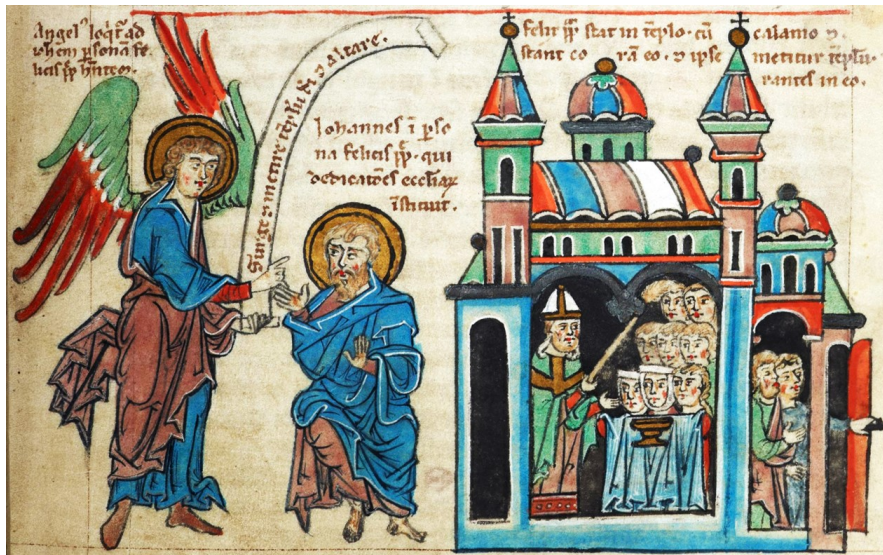 Angel' loqr̄ ad
iohem psonā fe
licis pp hn̄tem.
Surge ⁊ metire tēplū dī ⁊ altare.
Iohannes ī pso
na felicis pp̄. qui
dedicatōes eccliaꝝ
īstituit.
felix pp̄ stat in tēplo. cū calamo ⁊
stant co rā eo. ⁊ ipse metitur tēplū
rantes in eo.